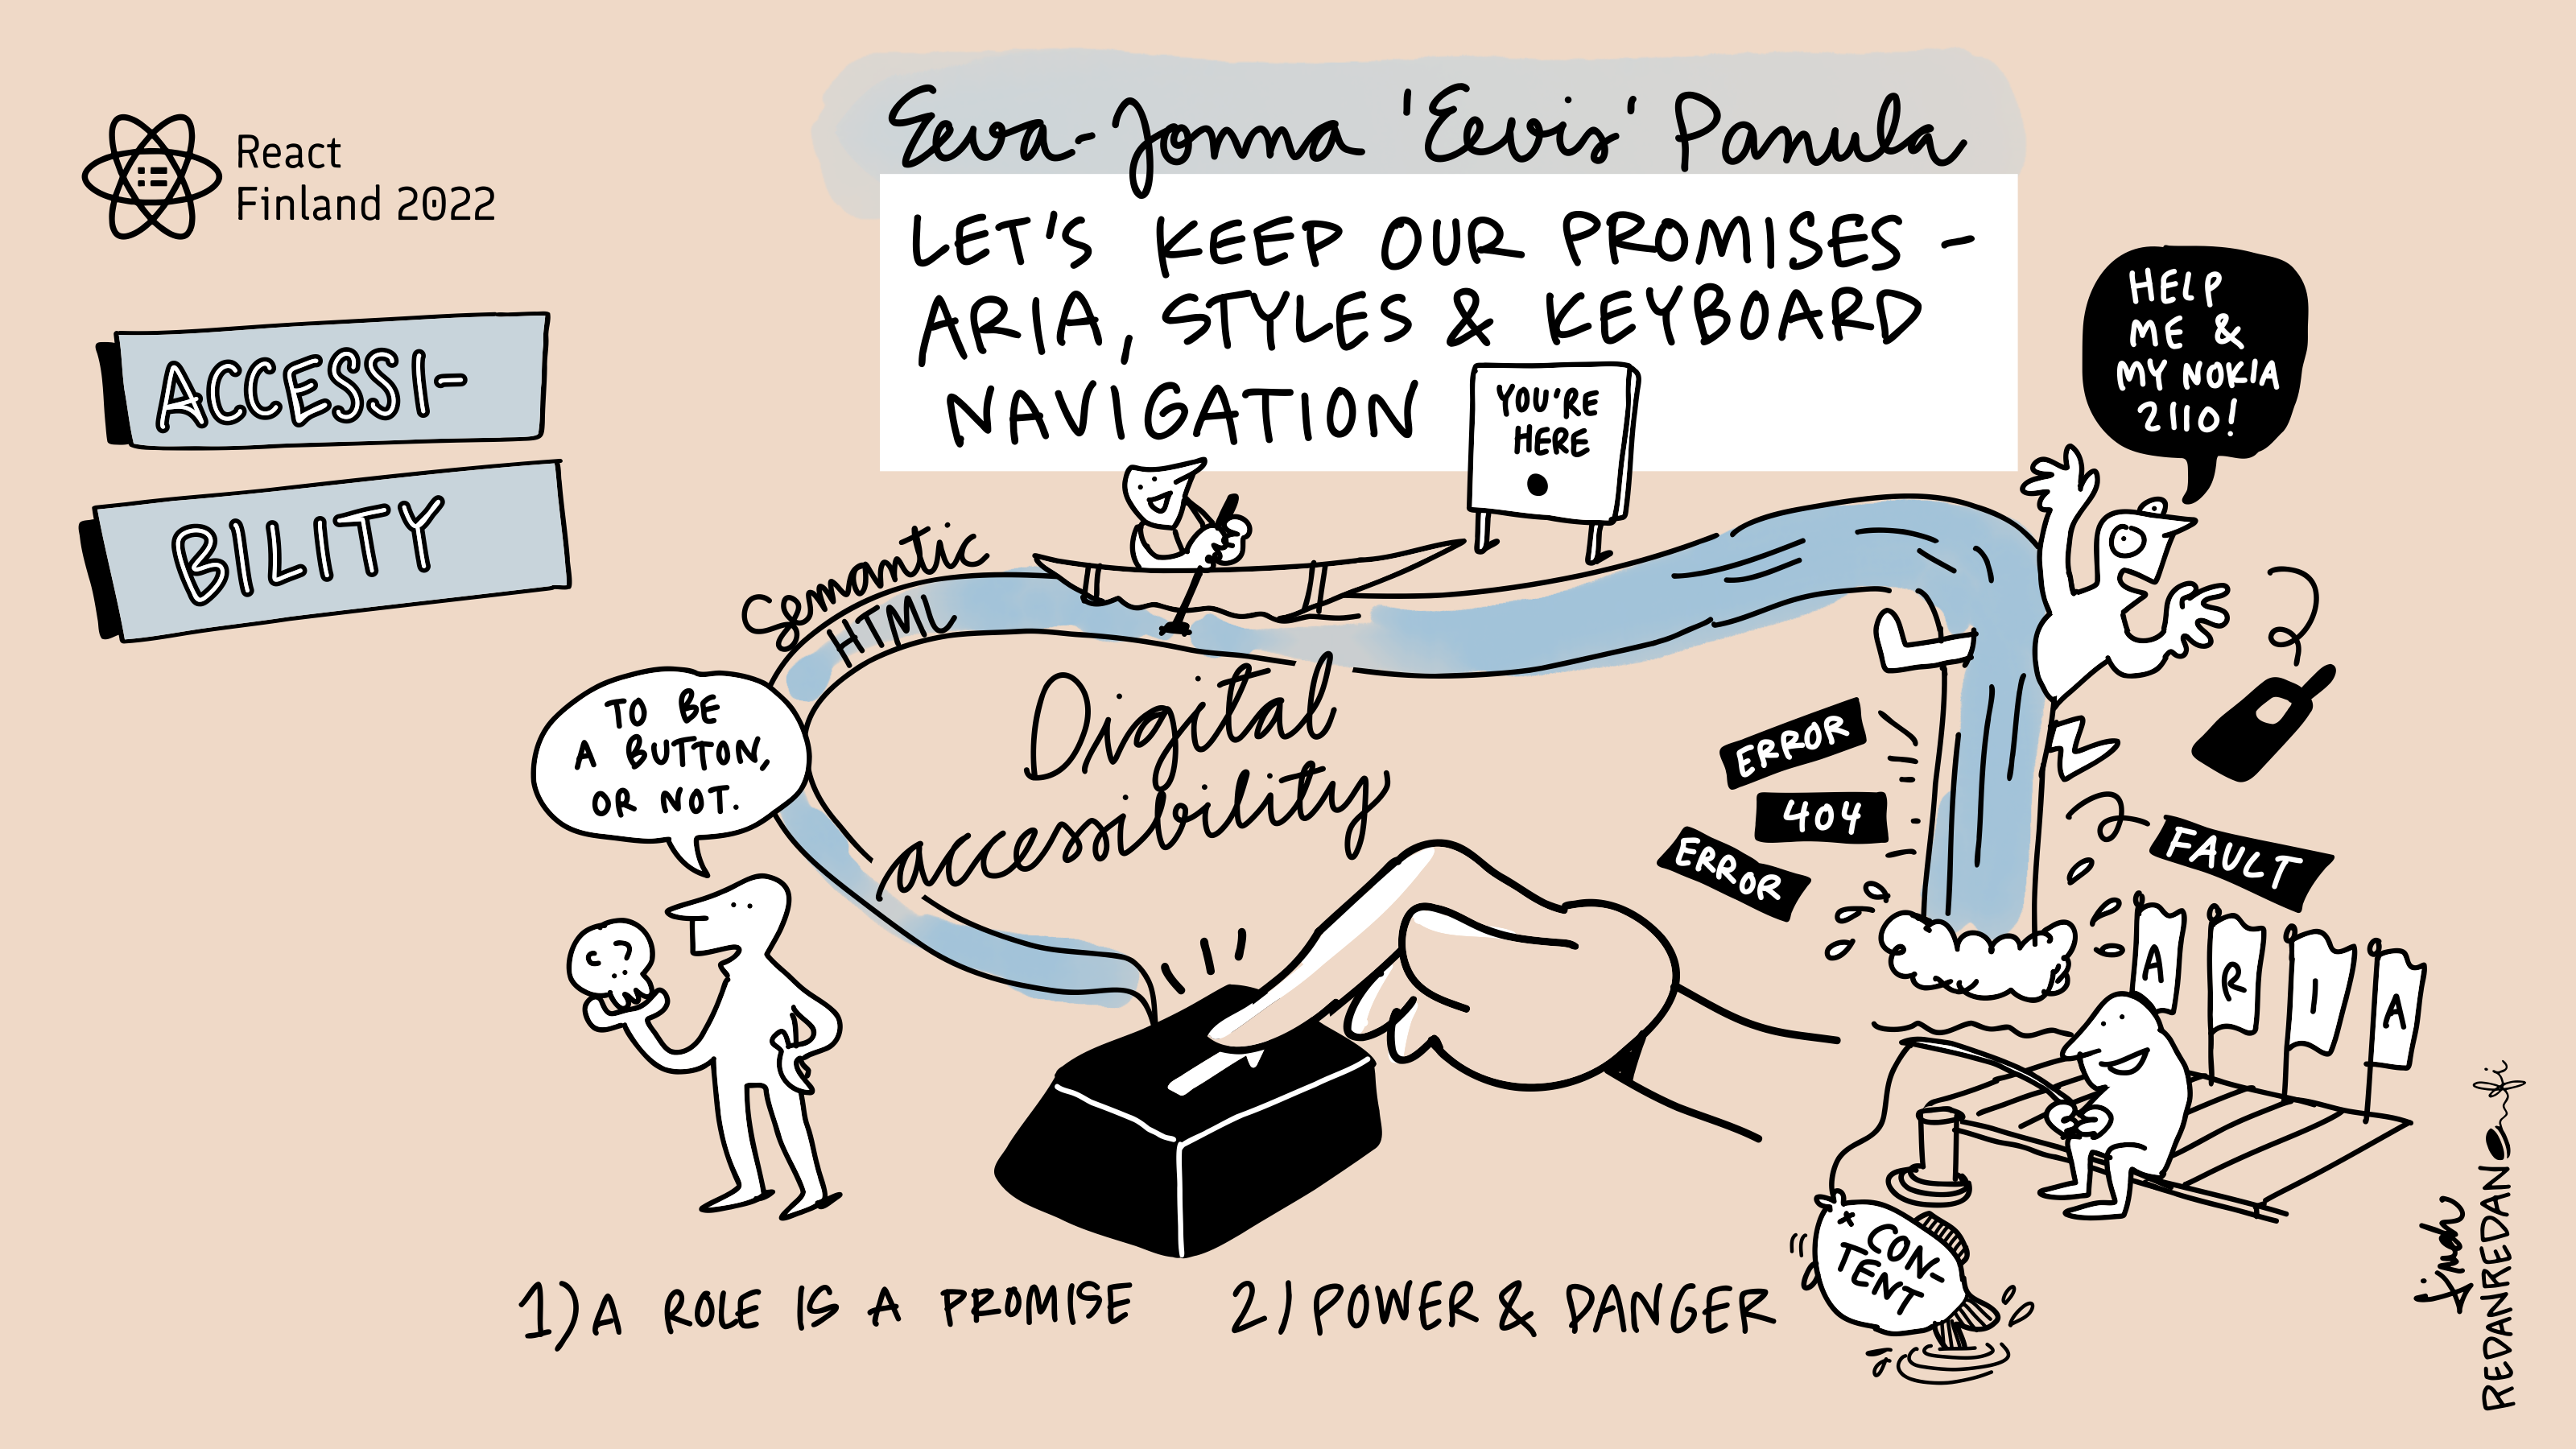 React
Finland 2022
ACCESSI-
BILITY
Eeva-Jonna 'Eevis' Panula
LET'S KEEP OUR PROMISES -
ARIA, STYLES & KEYBOARD
NAVIGATION
YOU'RE
HERE
HELP
ME &
MY NOKIA
2110!
Semantic
HTML
Digital
accessibility
TO BE
A BUTTON,
OR NOT.
ERROR
404
ERROR
FAULT
A R I A
CON-
TENT
1) A ROLE IS A PROMISE
2) POWER & DANGER
REDANREDAN